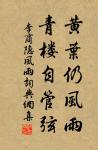 黄葉仍風雨
青楼自管弦
李商隐風雨詞典網集